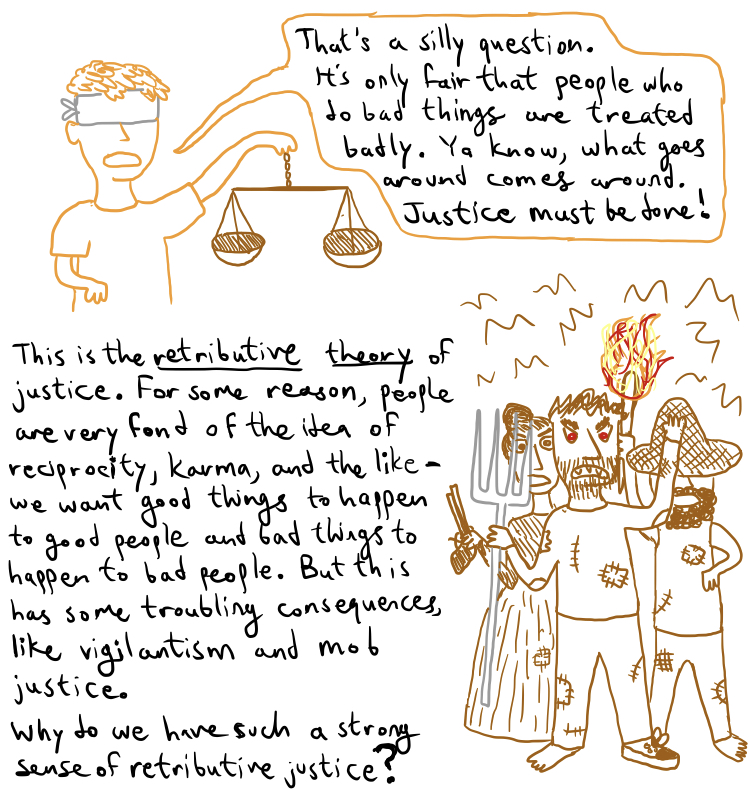 That's a silly question.
It's only fair that people who
do bad things are treated
badly. Ya know, what goes
around comes around.
Justice must be done!
This is the retributive theory of
justice. For some reason, people
are very fond of the idea of
reciprocity, karma, and the like –
we want good things to happen
to good people and bad things to
happen to bad people. But this
has some troubling consequences,
like vigilantism and mob
justice.
Why do we have such a strong
sense of retributive justice?